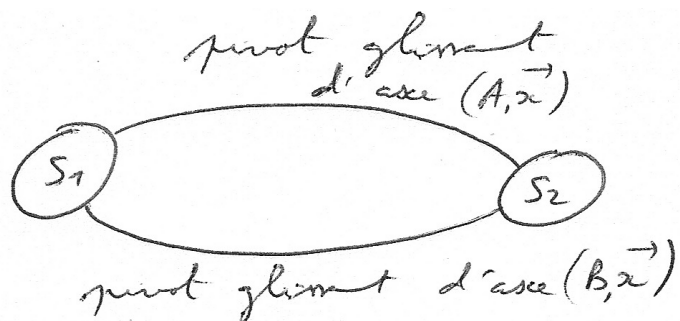 pivot glissant
d'axe (A, x⃗)
S1
S2
pivot glissant d'axe (B, x⃗)